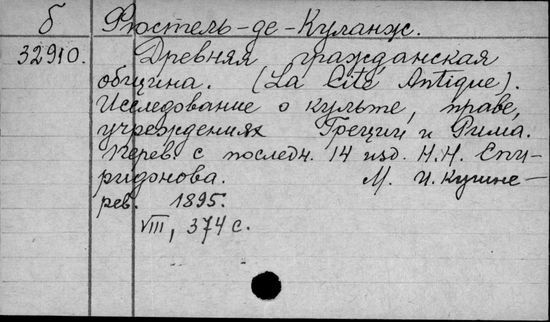 б Фюстель-де-Куланж.
32910. Древняя гражданская
община. (La Cité Antique).
Исследование о культе, праве,
учреждениях Греции и Рима.
Перев. с последн. 14 изд. Н.Н. Спи-
ридонова. М. И. Кушне-
рев. 1895.
VIII, 374 с.